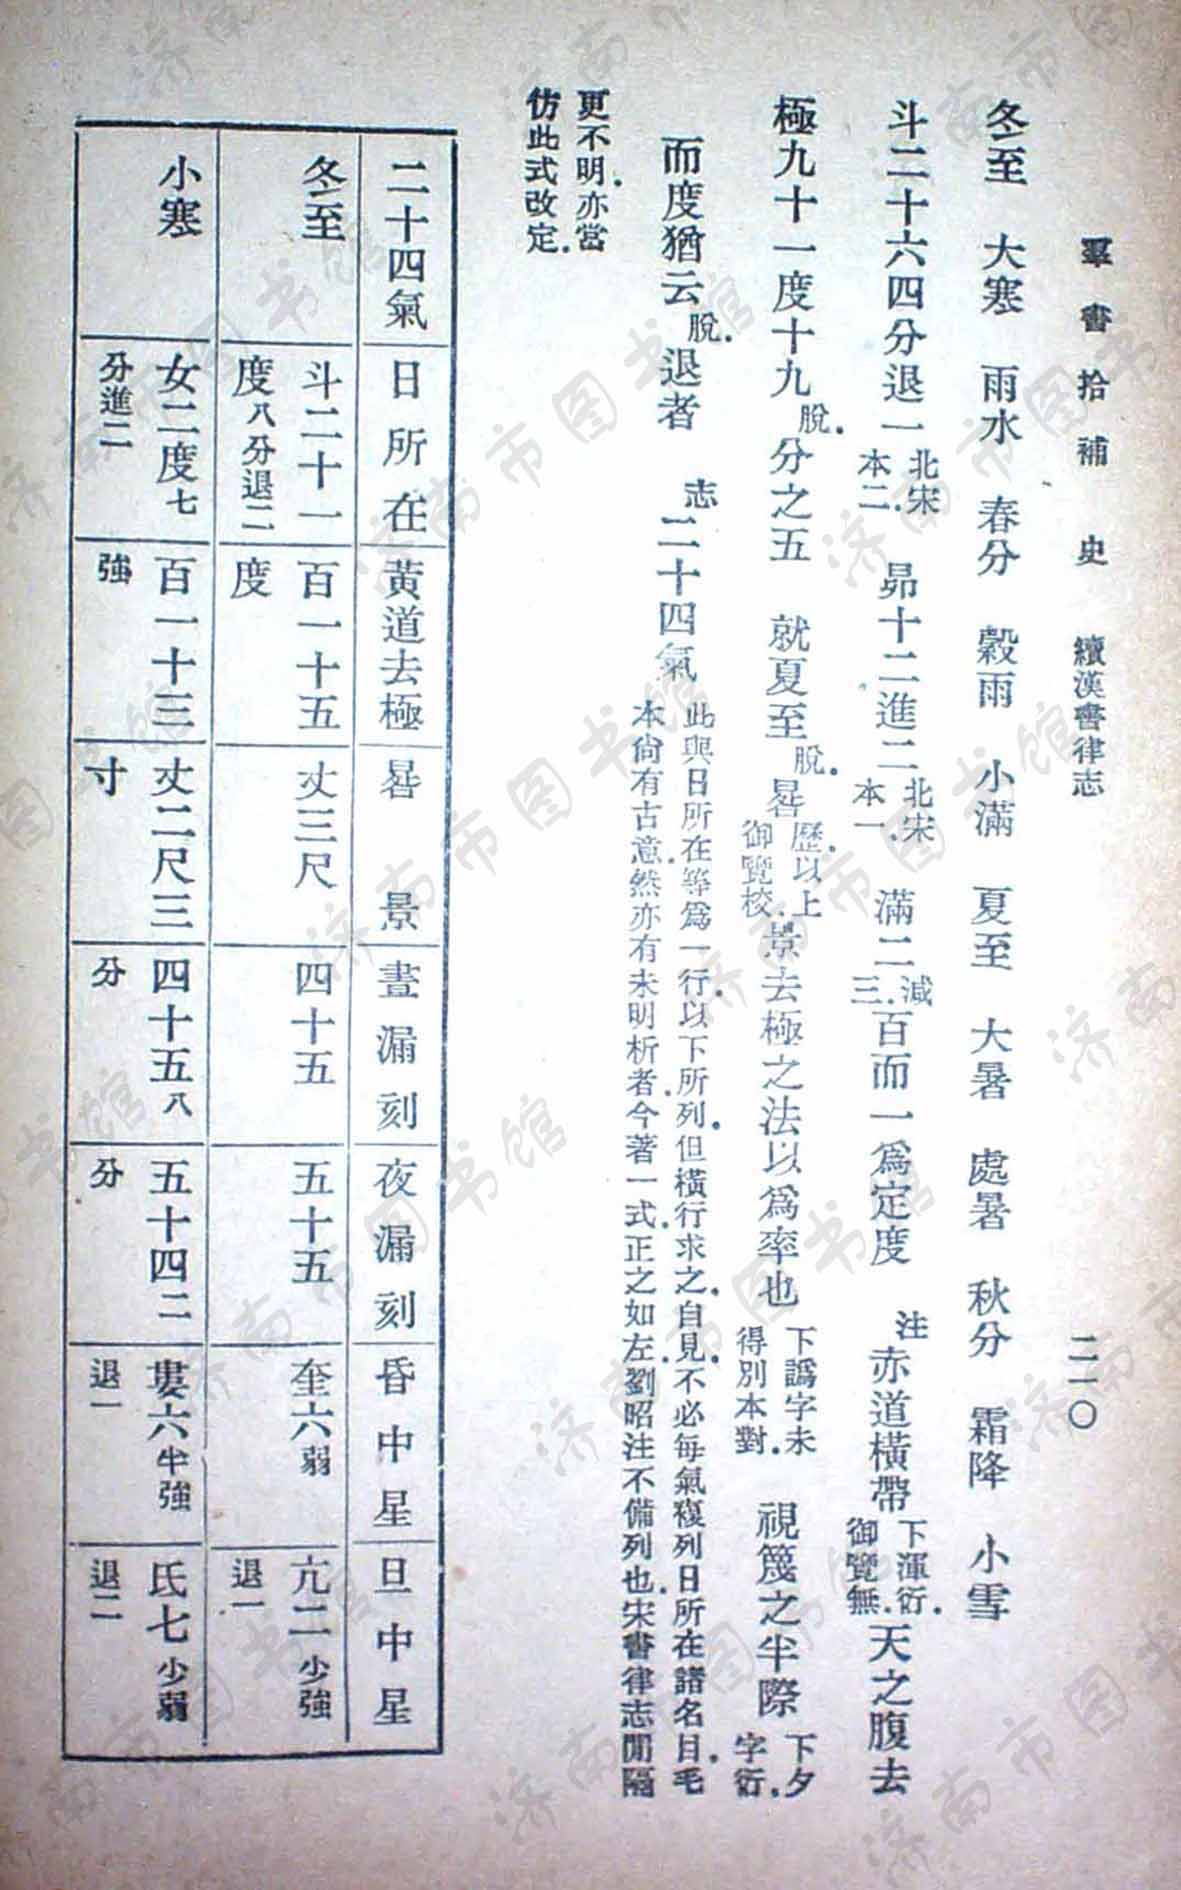 羣書拾補 史 續漢書律志 二一〇
冬至 大寒 雨水 春分 穀雨 小滿 夏至 大暑 處暑 秋分 霜降 小雪
斗二十六四分退一北宋本二. 昴十二進二北宋本一. 滿二減三.百而一爲定度 注赤道橫帶下渾衍.御覽無.天之腹去
極九十一度十九脫.分之五 就夏至脫.晷歷.以上御覽校.景去極之法以爲率也下譌字未得別本對. 視篾之半際下夕字衍.
而度猶云脫.退者 志二十四氣此與日所在等爲一行.以下所列.但橫行求之.自見.不必每氣複列日所在諸名目.毛
本尚有古意.然亦有未明析者.今著一式.正之如左.劉昭注不備列也.宋書律志閒隔
更不明.亦當
仿此式改定.
二十四氣 日所在 黃道去極 晷景 晝漏刻 夜漏刻 昏中星 旦中星
冬至 斗二十一度八分退二 百一十五度 丈三尺 四十五 五十五 奎六弱 亢二少強退一
小寒 女二度七分進二 百一十三強 丈二尺三寸 四十五八分 五十四二分 婁六半強退一 氐七少弱退二
济南市图书馆